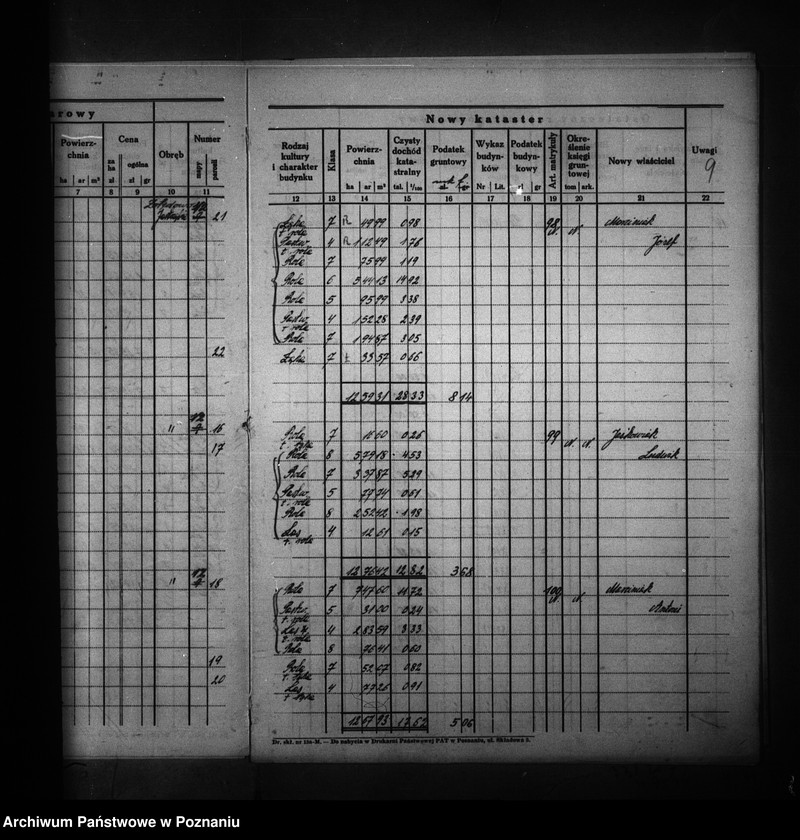 arowy
Powierz-
chnia
ha ar m²
7
Cena
za
ha
zł
8
ogólna
zł gr
9
Obręb
10
Numer
mapy parceli
11
21
22
" 16
17
" 18
19
20
Nowy kataster
9
Rodzaj
kultury
i charakter
budynku
12
Klasa
13
Powierz-
chnia
ha ar m²
14
Czysty
dochód
kata-
stralny
tal. 1/100
15
Podatek
gruntowy
16
Wykaz
budyn-
ków
Nr Lit.
17
Podatek
budyn-
kowy
zł gr
18
Art. matrykuły
19
Okre-
ślenie
księgi
grun-
towej
tom ark.
20
Nowy właściciel
21
Uwagi
22
Łąka 7 49 99 0 98 98 Marciniak
Pastw. 4 1 12 49 1 76 Józef
Rola 7 75 99 1 19
Rola 6 5 44 13 14 92
Rola 5 95 99 3 38
Pastw. 4 1 52 28 2 39
Rola 7 1 94 87 3 05
Łąka 7 33 57 0 66
12 59 31 28 33 8 14
Rola 7 16 60 0 26 99 Jaśkowiak
Rola 8 5 79 18 4 53 Ludwik
Rola 7 3 37 87 5 29
Pastw. 5 77 74 0 61
Rola 8 2 52 42 1 98
Las 4 12 61 0 15
12 76 42 12 82 3 68
Rola 7 7 47 60 11 72 100 Marciniak
Pastw. 5 31 00 0 24 Antoni
Las 4 2 83 59 3 33
Rola 8 76 41 0 60
Rola 7 52 67 0 82
Las 4 77 26 0 91
12 67 93 17 62 5 06
Dr. skł. nr 120-M. — Do nabycia w Drukarni Państwowej PAT w Poznaniu, ul. Składowa 5.
Archiwum Państwowe w Poznaniu